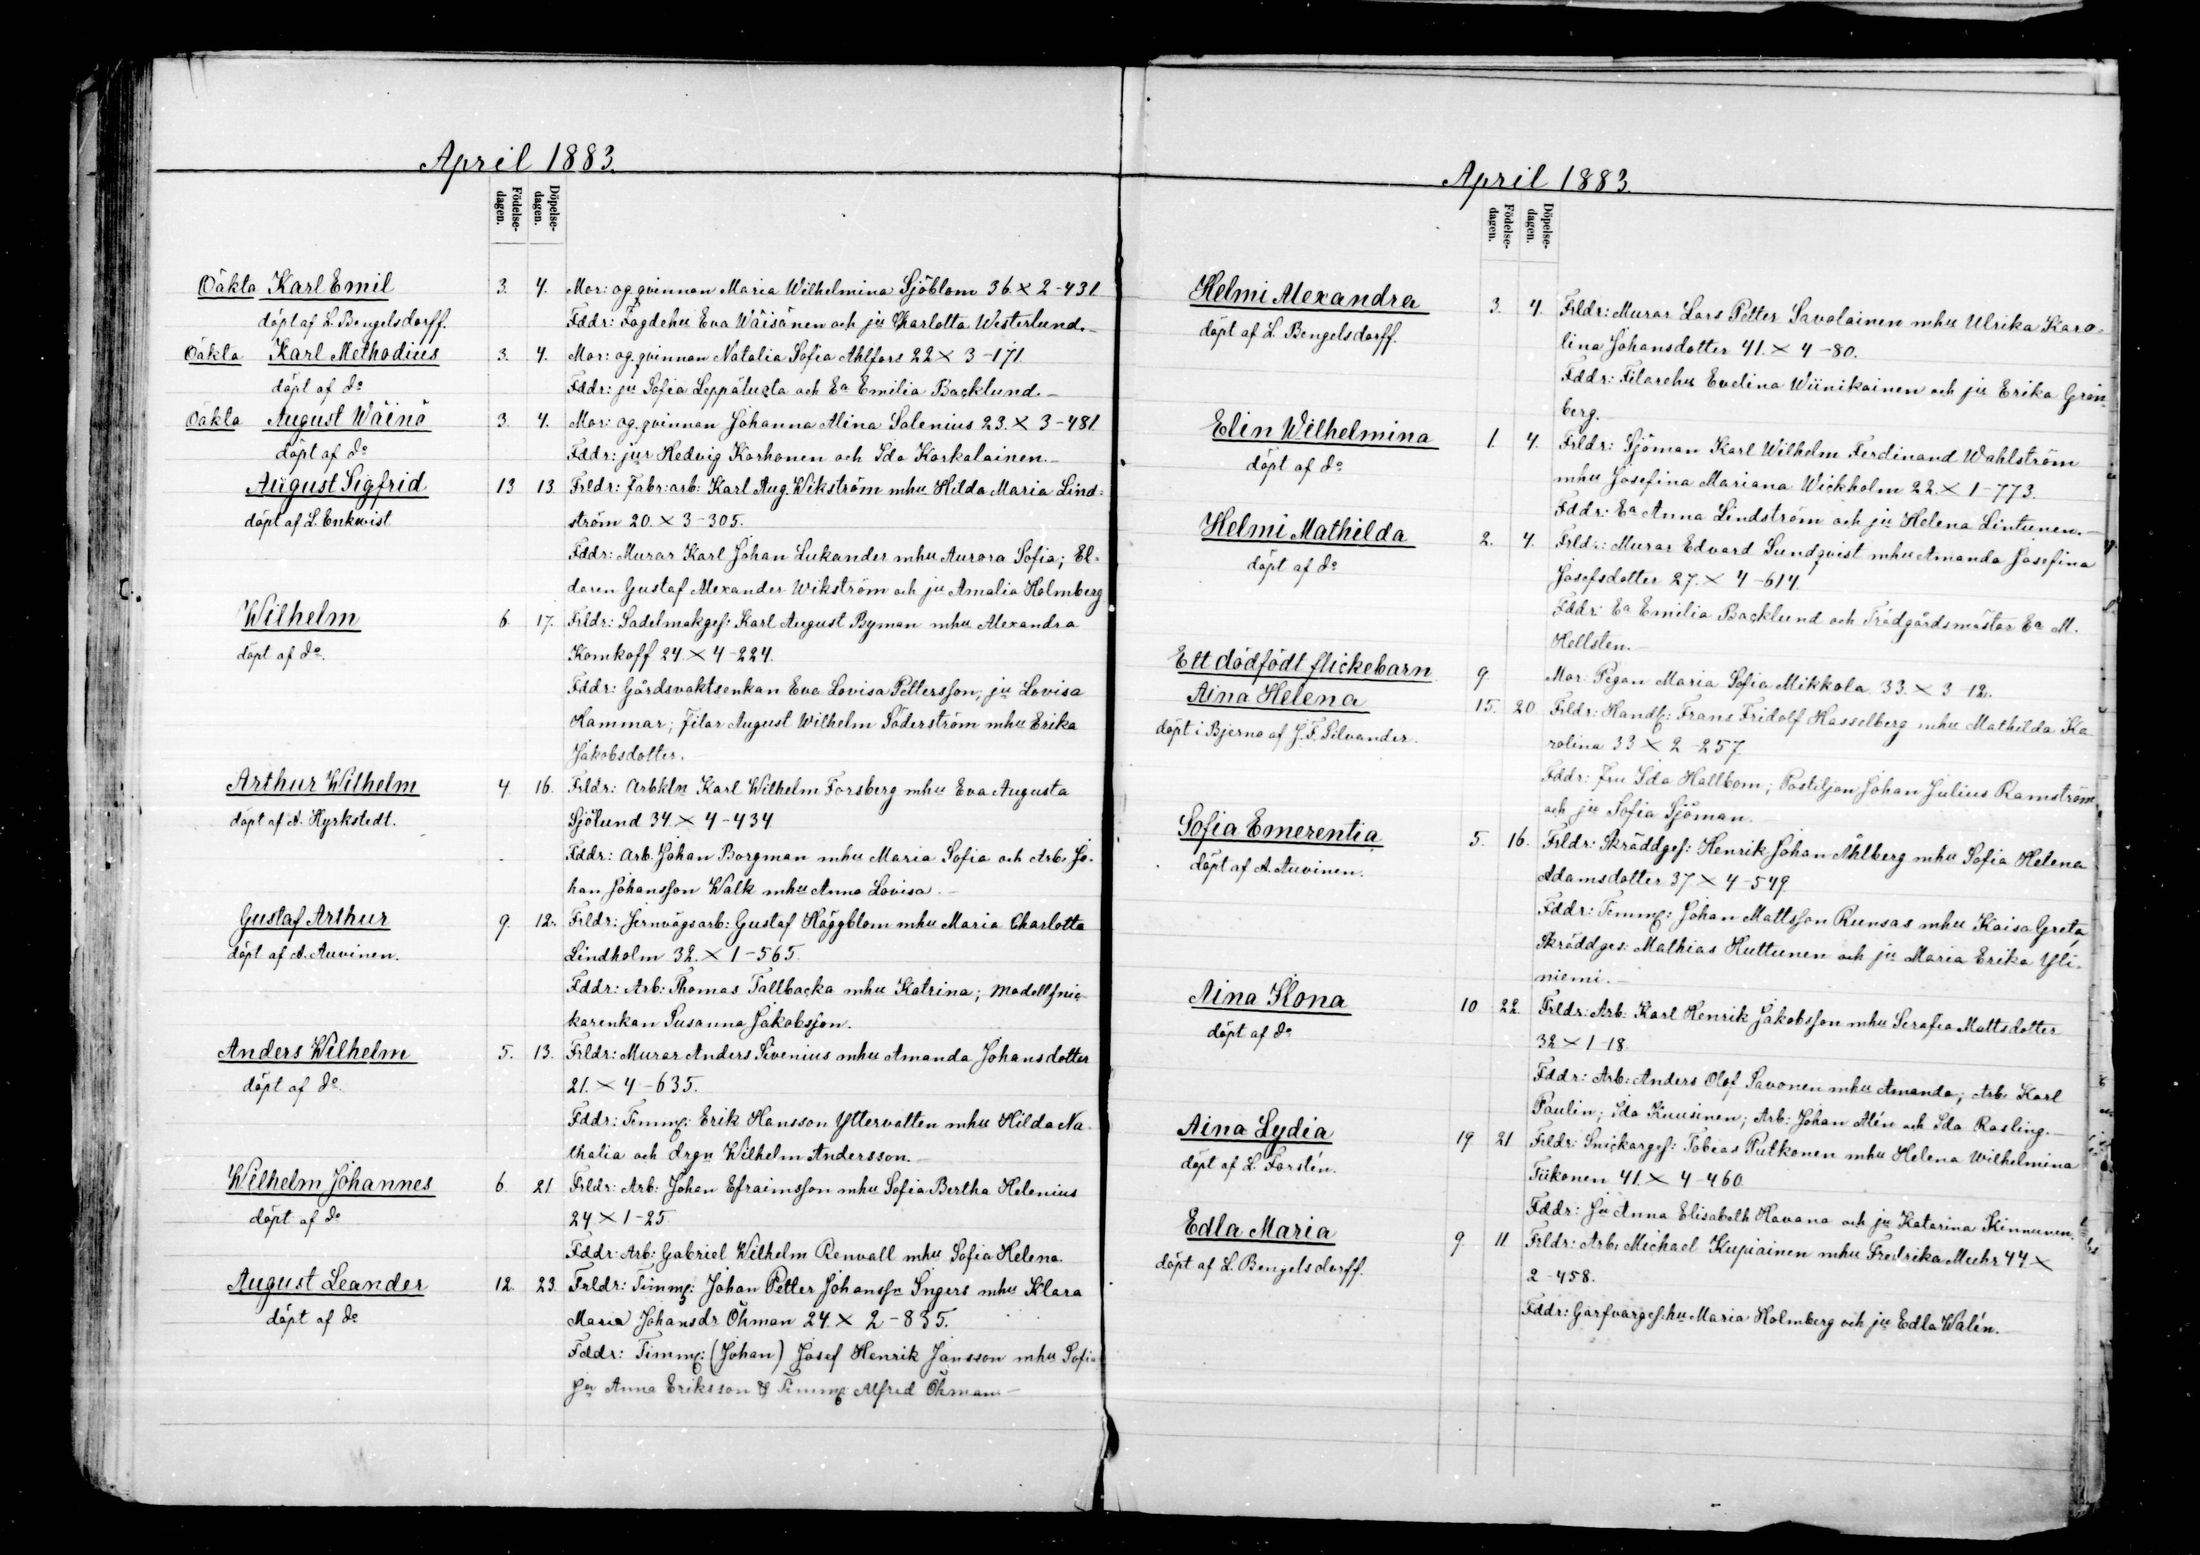 April 1883.
Födelse-dagen. Döpelse-dagen.
Oäkta Karl Emil 3. 4. Mor: og. qvinnan Maria Wilhelmina Sjöblom 36. × 2-431
döpt af L. Bengelsdorff. Fddr: Fogdehu Eva Wäisänen och ju Charlotta Westerlund.-
Oäkta Karl Methodius 3. 4. Mor: og. qvinnan Natalia Sofia Ahlfors 22 × 3-171
döpt af do Fddr: ju Sofia Leppäluota och Ea Emilia Backlund.-
Oäkta August Wäinö 3. 4. Mor: og. qvinnan Johanna Alina Salenius 23. × 3-481
döpt af do Fddr: jur Hedvig Korhonen och Ida Karkalainen.-
August Sigfrid 13 13 Frldr: Fabr:arb: Karl Aug. Wikström mhu Hilda Maria Lind-
döpt af L. Enkvist ström 20. × 3-305.
Fddr: Murar Karl Johan Lukander mhu Aurora Sofia; El-
daren Gustaf Alexander Wikström och ju Amalia Holmberg
Wilhelm 6. 17. Frldr: Sadelmakgef: Karl August Byman mhu Alexandra
döpt af do. Komkoff 24 × 4-224.
Fddr: Gårdsvaktsenkan Eva Lovisa Pettersson, ju Lovisa
Hammar; Filar August Wilhelm Söderström mhu Erika
Jakobsdotter.
Arthur Wilhelm 4. 16. Frldr: Arbkln Karl Wilhelm Forsberg mhu Eva Augusta
döpt af A. Hyrkstedt. Sjölund 34 × 4-434
Fddr: Arb. Johan Borgman mhu Maria Sofia och Arb. Jo-
han Johansson Walk mhu Anna Lovisa.-
Gustaf Arthur 9. 12. Frldr: Jernvägsarb: Gustaf Häggblom mhu Maria Charlotta
döpt af A. Auvinen. Lindholm 32. × 1-565.
Fddr: Arb: Thomas Tallbacka mhu Katrina; Modellsnic-
karenkan Susanna Jakobsson.
Anders Wilhelm 5. 13. Frldr: Murar Anders Sivenius mhu Amanda Johansdotter
döpt af do. 21. × 4-635.
Fddr: Timmg: Erik Hansson Yttervatten mhu Hilda Na-
thalia och drgn Wilhelm Andersson.-
Wilhelm Johannes 6. 21 Frldr: Arb: Johan Efraimsson mhu Sofia Bertha Helenius
döpt af do 24 × 1-25
Fddr: Arb: Gabriel Wilhelm Renvall mhu Sofia Helena.
August Leander 12. 23. Frldr: Timmg: Johan Petter Johanssn Ingers mhu Klara
döpt af do Maria Johansdr Öhman 24. × 2-835.
Fddr: Timmg: (Johan) Josef Henrik Jansson mhu Sofia
Ju Anna Eriksson & Timmg Alfred Öhman.-
April 1883
Födelse-dagen. Döpelse-dagen.
Helmi Alexandra 3. 4. Frldr: Murar Lars Petter Savolainen mhu Ulrika Karo-
döpt af L. Bengelsdorff. lina Johansdotter 41. × 4-80.
Fddr: Filarehu Evelina Wiinikainen och ju Erika Grön-
berg.-
Elin Wilhelmina 1. 4. Frldr: Sjöman Karl Wilhelm Ferdinand Wahlström
döpt af do mhu Josefina Mariana Wickholm 22. × 1-773.
Fddr: Ea Anna Lindström och ju Helena Lintunen.-
Helmi Mathilda 2. 4. Frld.: Murar Edvard Sundqvist mhu Amanda Josefina
döpt af do Josefsdotter 27. × 4-614.
Fddr: Ea Emilia Backlund och Trädgårdsmästar Ea M.
Hellsten.-
Ett dödfödt flickebarn 9 Mor: Pigan Maria Sofia Mikkola 33. × 3-12.
Aina Helena 15. 20 Frldr: Handl: Frans Fridolf Hasselberg mhu Mathilda Ka-
döpt i Bjerno af J. F. Silvander. rolina 33 × 2-257
Fddr: Fru Ida Hallbom; Postiljon Johan Julius Ramström
och ju Sofia Sjöman.
Sofia Emerentia 5. 16. Frldr: Skräddgef: Henrik Johan Åhlberg mhu Sofia Helena
döpt af A. Auvinen. Adamsdotter 37 × 4-549
Fddr: Timmg: Johan Mattsson Runsas mhu Kaisa Greta,
Skräddges: Mathias Huttunen och ju Maria Erika Yli-
niemi.-
Aina Ilona 10 22. Frldr: Arb: Karl Henrik Jakobsson mhu Serafia Mattsdotter
döpt af do 32 × 1-18.
Fddr: Arb: Anders Olof Savonen mhu Amanda; Arb. Karl
Paulin; Ida Kuusinen; Arb: Johan Alén och Ida Rosling.-
Aina Lydia 19 21 Frldr: Snickargef: Tobias Putkonen mhu Helena Wilhelmina
döpt af L. Forstén. Tiikonen 41. × 4-460
Fddr: Ju Anna Elisabeth Havana och ju Katarina Kinnunen.
Edla Maria 9. 11. Frldr: Arb: Michael Kupiainen mhu Fredrika Muhr 44 ×
döpt af L. Bengelsdorff. 2-458.
Fddr: Garfvargef:hu Maria Holmberg och ju Edla Walén.-